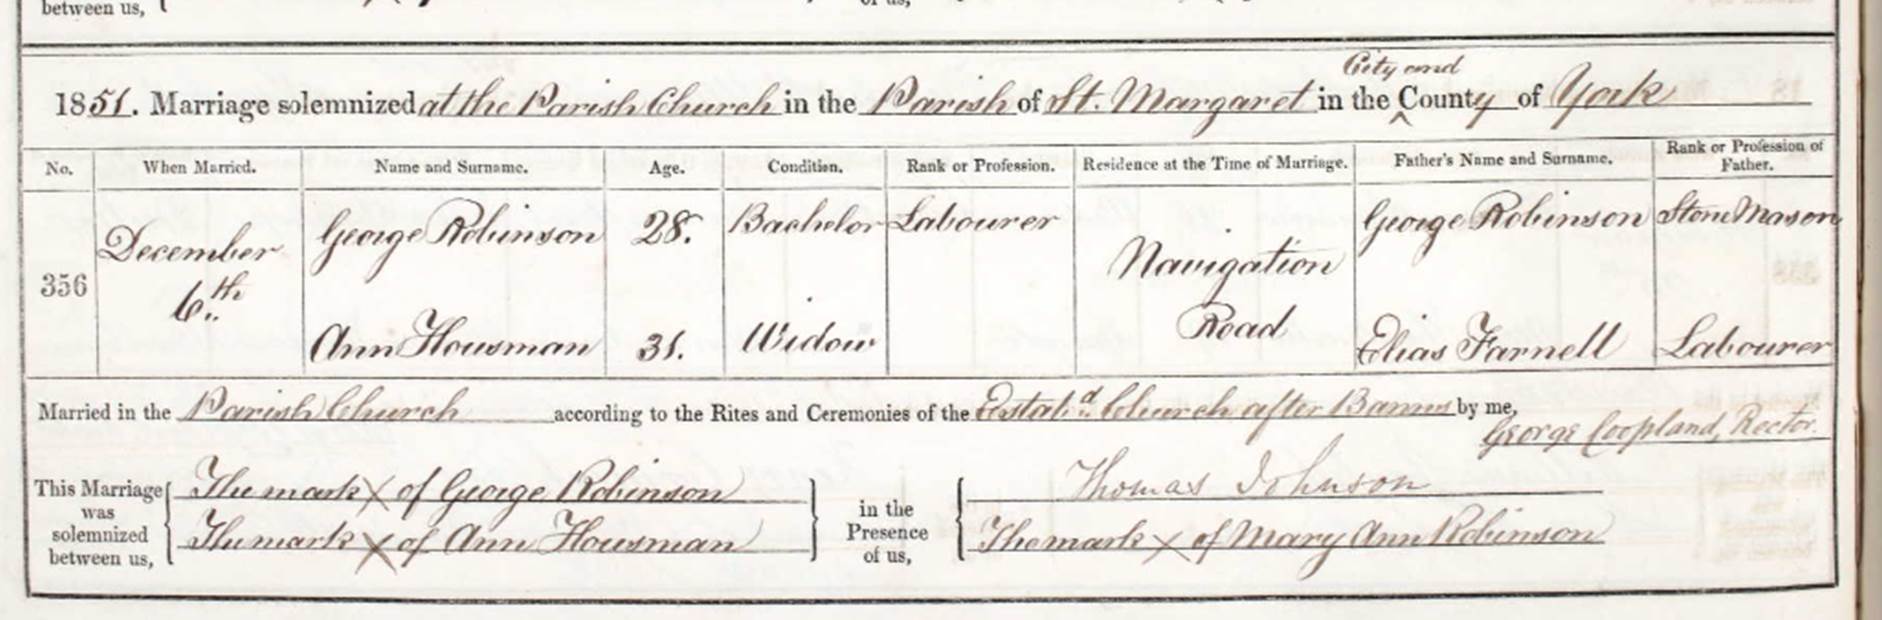 between us,
City and
1851. Marriage solemnized at the Parish Church in the Parish of St. Margaret in the ^ County of York
No. When Married. Name and Surname. Age. Condition. Rank or Profession. Residence at the Time of Marriage. Father's Name and Surname. Rank or Profession of Father.
356 December 6th George Robinson 28. Bachelor Labourer Navigation Road George Robinson Stone Mason
Ann Housman 31. Widow Elias Farnell Labourer
Married in the Parish Church according to the Rites and Ceremonies of the Estabd. Church after Banns by me,
George Coopland, Rector.
This Marriage was solemnized between us, The mark X of George Robinson in the Presence of us, Thomas Johnson
The mark X of Ann Housman The mark X of Mary Ann Robinson